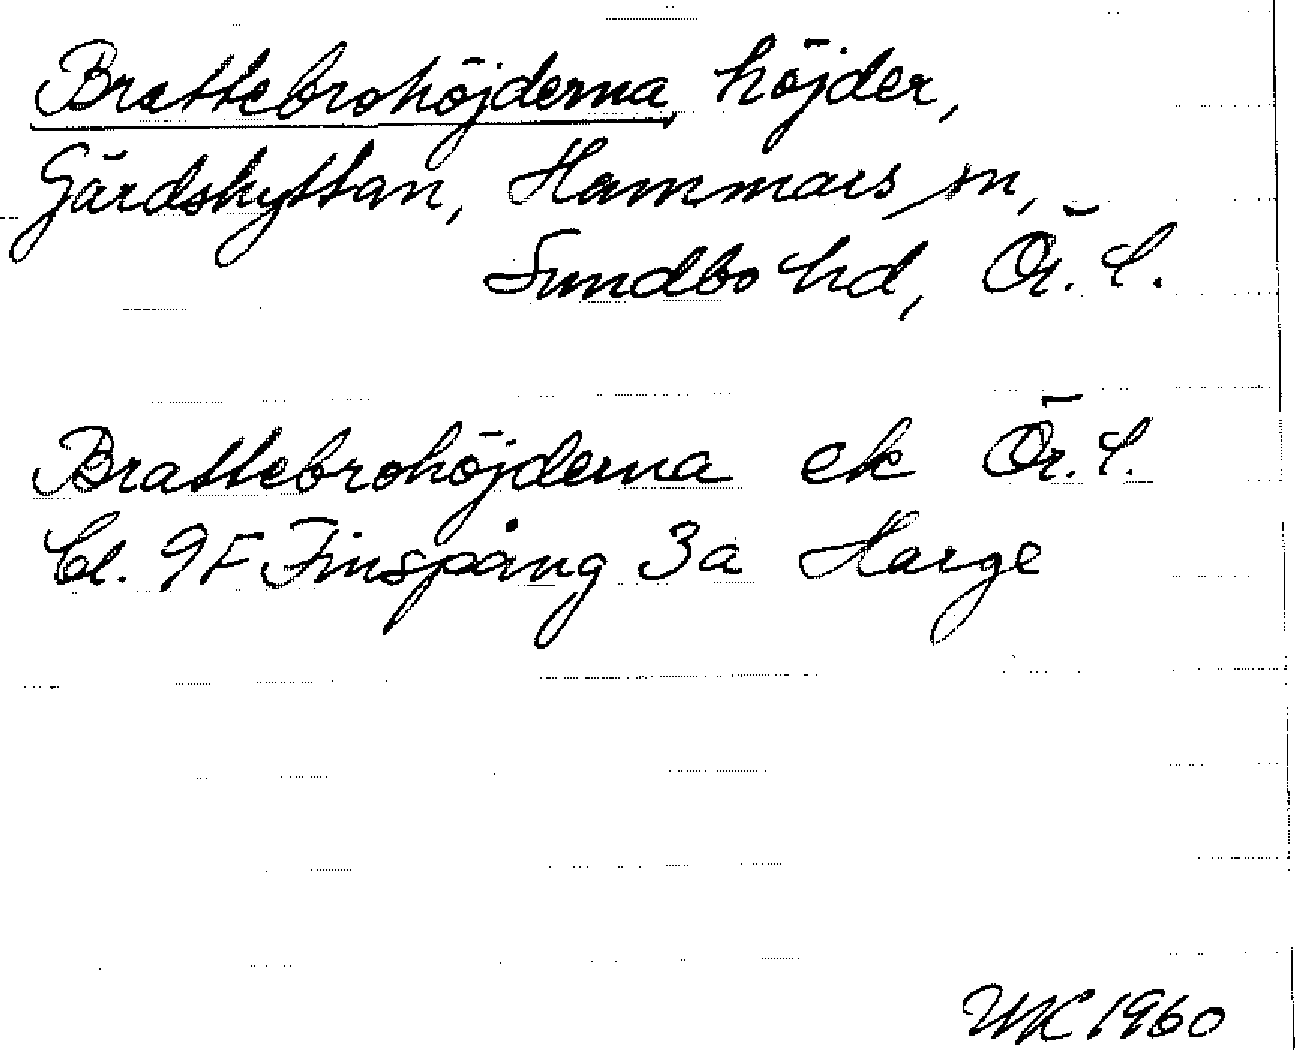 Brattebrohöjderna höjder,
Gärdshyttan, Hammars sn,
Sundbo hd, Ör. l.
Brattebrohöjderna ek Ör. l.
bl. 9F Finspång 3a Harge
1960